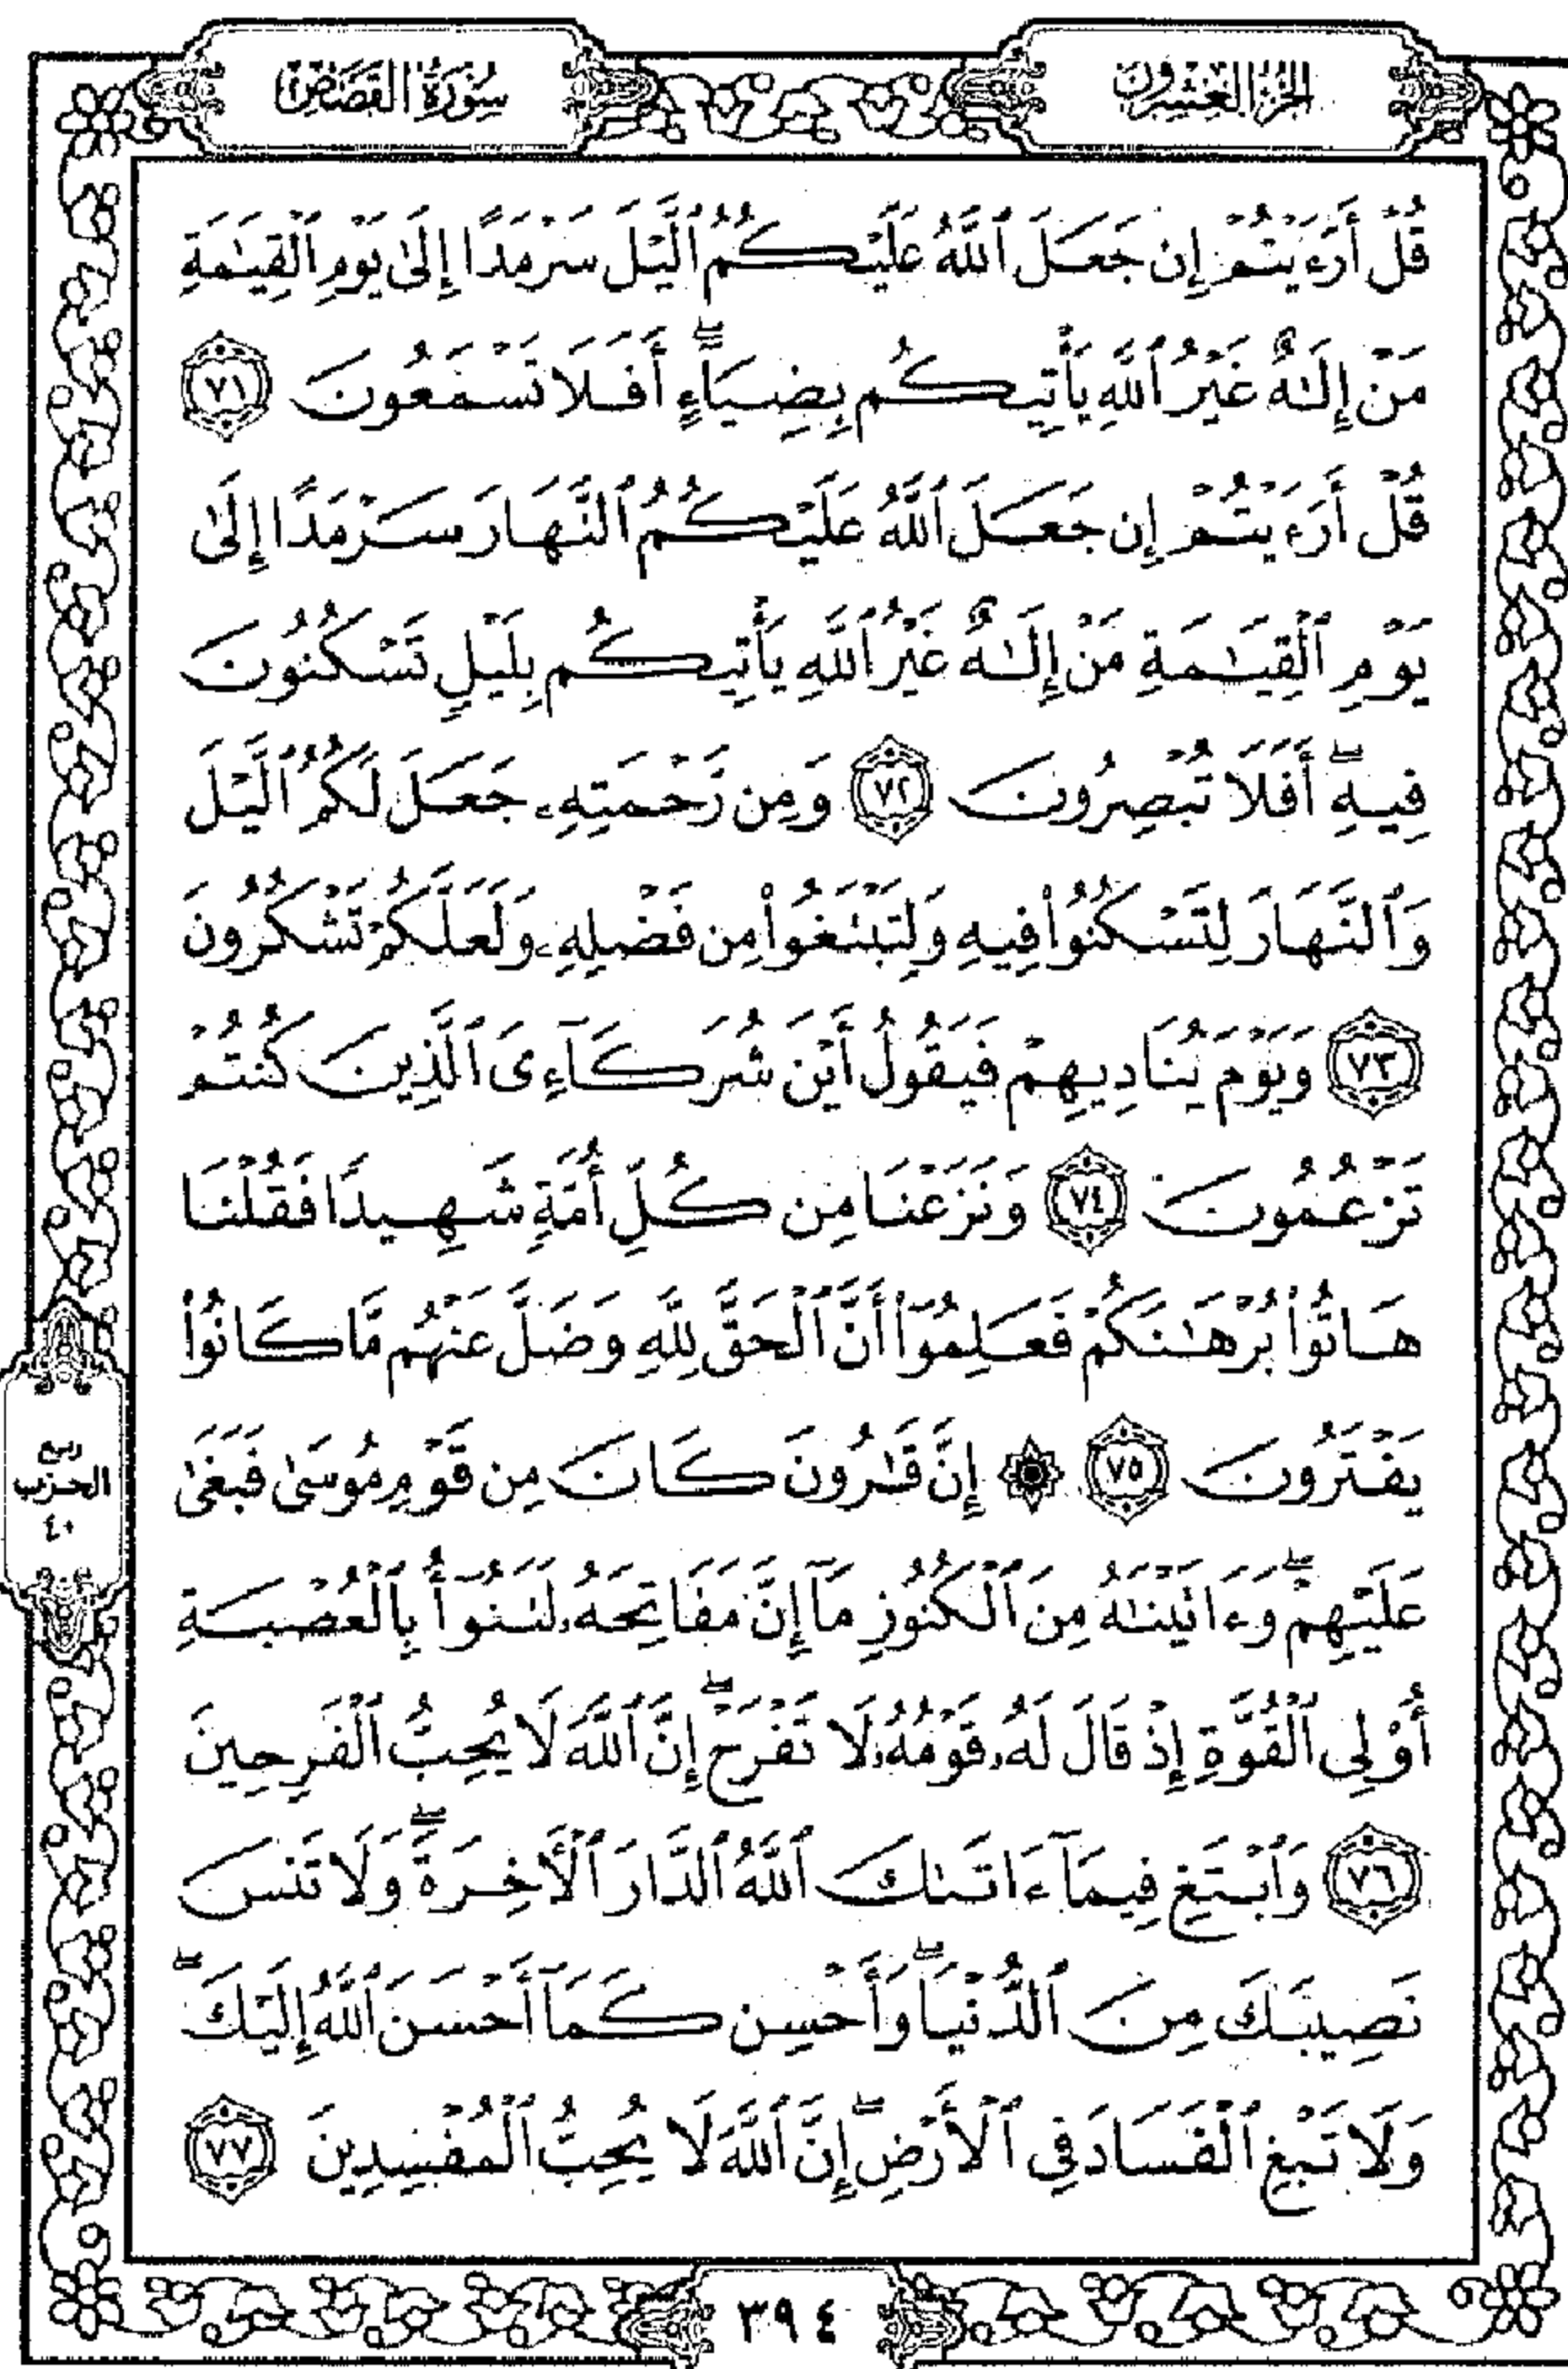 الجزء العشرون
سورة القصص
قُلْ أَرَءَيْتُمْ إِن جَعَلَ ٱللَّهُ عَلَيْكُمُ ٱلَّيْلَ سَرْمَدًا إِلَىٰ يَوْمِ ٱلْقِيَـٰمَةِ
مَنْ إِلَـٰهٌ غَيْرُ ٱللَّهِ يَأْتِيكُم بِضِيَآءٍ ۖ أَفَلَا تَسْمَعُونَ ٧١
قُلْ أَرَءَيْتُمْ إِن جَعَلَ ٱللَّهُ عَلَيْكُمُ ٱلنَّهَارَ سَرْمَدًا إِلَىٰ
يَوْمِ ٱلْقِيَـٰمَةِ مَنْ إِلَـٰهٌ غَيْرُ ٱللَّهِ يَأْتِيكُم بِلَيْلٍ تَسْكُنُونَ
فِيهِ ۖ أَفَلَا تُبْصِرُونَ ٧٢ وَمِن رَّحْمَتِهِۦ جَعَلَ لَكُمُ ٱلَّيْلَ
وَٱلنَّهَارَ لِتَسْكُنُوا۟ فِيهِ وَلِتَبْتَغُوا۟ مِن فَضْلِهِۦ وَلَعَلَّكُمْ تَشْكُرُونَ
٧٣ وَيَوْمَ يُنَادِيهِمْ فَيَقُولُ أَيْنَ شُرَكَآءِىَ ٱلَّذِينَ كُنتُمْ
تَزْعُمُونَ ٧٤ وَنَزَعْنَا مِن كُلِّ أُمَّةٍ شَهِيدًا فَقُلْنَا
هَاتُوا۟ بُرْهَـٰنَكُمْ فَعَلِمُوٓا۟ أَنَّ ٱلْحَقَّ لِلَّهِ وَضَلَّ عَنْهُم مَّا كَانُوا۟
يَفْتَرُونَ ٧٥ ۞ إِنَّ قَـٰرُونَ كَانَ مِن قَوْمِ مُوسَىٰ فَبَغَىٰ
عَلَيْهِمْ ۖ وَءَاتَيْنَـٰهُ مِنَ ٱلْكُنُوزِ مَآ إِنَّ مَفَاتِحَهُۥ لَتَنُوٓأُ بِٱلْعُصْبَةِ
أُو۟لِى ٱلْقُوَّةِ إِذْ قَالَ لَهُۥ قَوْمُهُۥ لَا تَفْرَحْ ۖ إِنَّ ٱللَّهَ لَا يُحِبُّ ٱلْفَرِحِينَ
٧٦ وَٱبْتَغِ فِيمَآ ءَاتَىٰكَ ٱللَّهُ ٱلدَّارَ ٱلْأَخِرَةَ ۖ وَلَا تَنسَ
نَصِيبَكَ مِنَ ٱلدُّنْيَا ۖ وَأَحْسِن كَمَآ أَحْسَنَ ٱللَّهُ إِلَيْكَ ۖ
وَلَا تَبْغِ ٱلْفَسَادَ فِى ٱلْأَرْضِ ۖ إِنَّ ٱللَّهَ لَا يُحِبُّ ٱلْمُفْسِدِينَ ٧٧
ربع
الحزب
٤٠
٣٩٤